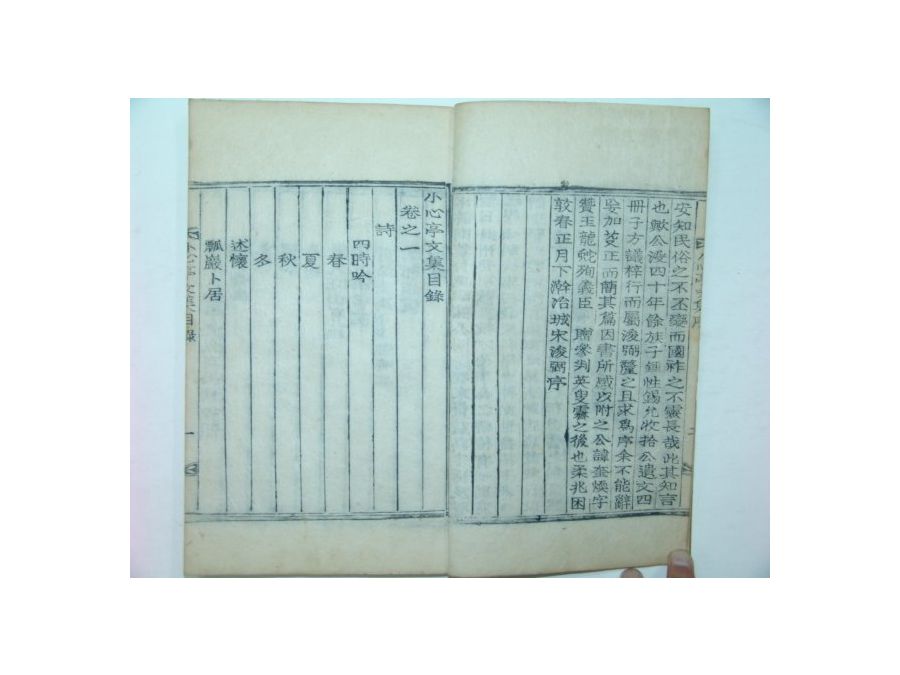 安知民俗之不丕變而國祚之不靈長哉此其知言
也歟公沒四十年餘族子鍾性錫允收拾公遺文四
冊子方議梓行而屬浚弼釐之且求爲序余不能辭
妄加芟正而簡其篇因書所感以附之公諱奎煥字
贊玉龍蛇殉義臣 聯參判英叟霽之後也柔兆困
敦春正月下澣冶城宋浚弼序
小心亭文集目錄
卷之一
詩
四時吟
春
夏
秋
冬
述懷
瓢巖卜居
小心亭文集目錄
一